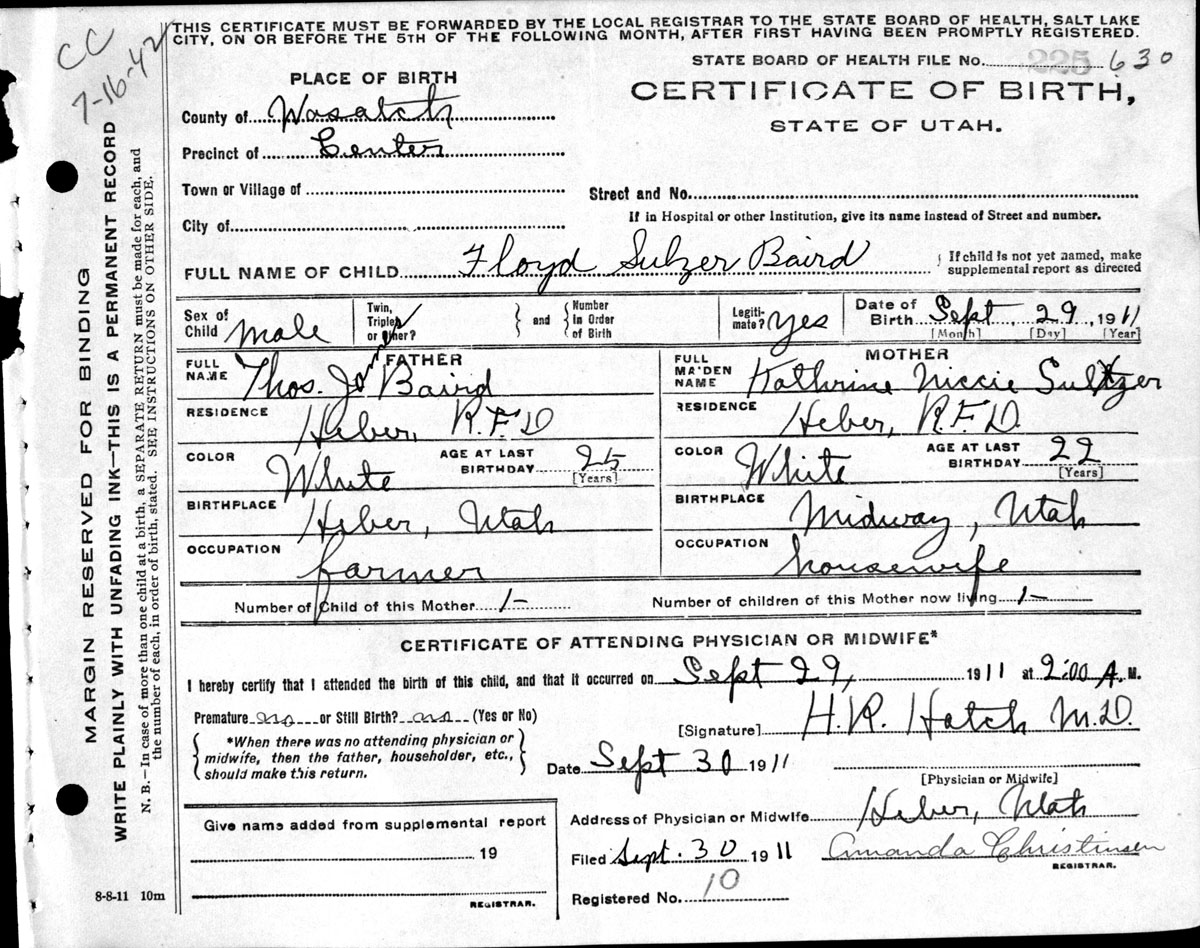 THIS CERTIFICATE MUST BE FORWARDED BY THE LOCAL REGISTRAR TO THE STATE BOARD OF HEALTH, SALT LAKE
CITY, ON OR BEFORE THE 5TH OF THE FOLLOWING MONTH, AFTER FIRST HAVING BEEN PROMPTLY REGISTERED.
CC
7-16-42
STATE BOARD OF HEALTH FILE No. 225 630
PLACE OF BIRTH
CERTIFICATE OF BIRTH,
STATE OF UTAH.
County of Wasatch
Precinct of Center
Town or Village of
Street and No.
If in Hospital or other Institution, give its name instead of Street and number.
City of
FULL NAME OF CHILD Floyd Sulzer Baird
If child is not yet named, make
supplemental report as directed
Sex of Child Male
Twin, Triplet or other?
and
Number in Order of Birth
Legiti-mate? Yes
Date of Birth Sept. 29, 1911
[Month] [Day] [Year]
FATHER
FULL NAME Thos. James Baird
RESIDENCE Heber, R.F.D
COLOR White
AGE AT LAST BIRTHDAY 25 [Years]
BIRTHPLACE Heber, Utah
OCCUPATION farmer
MOTHER
FULL MAIDEN NAME Kathrine Niccie Sultzer
RESIDENCE Heber, R.F.D.
COLOR White
AGE AT LAST BIRTHDAY 22 [Years]
BIRTHPLACE Midway, Utah
OCCUPATION housewife
Number of Child of this Mother 1-
Number of children of this Mother now living 1-
CERTIFICATE OF ATTENDING PHYSICIAN OR MIDWIFE*
I hereby certify that I attended the birth of this child, and that it occurred on Sept 29, 1911 at 2:00 A. M.
Premature no or Still Birth? no (Yes or No)
[Signature] H. R. Hatch M.D.
*When there was no attending physician or
midwife, then the father, householder, etc.,
should make this return.
Date Sept 30 1911
[Physician or Midwife]
Give name added from supplemental report
19
REGISTRAR.
Address of Physician or Midwife Heber, Utah
Filed Sept. 30 1911 Amanda Christinsen
REGISTRAR.
Registered No. 10
8-8-11 10m
MARGIN RESERVED FOR BINDING
WRITE PLAINLY WITH UNFADING INK—THIS IS A PERMANENT RECORD
N. B.—In case of more than one child at a birth, a SEPARATE RETURN must be made for each, and
the number of each, in order of birth, stated. SEE INSTRUCTIONS ON OTHER SIDE.